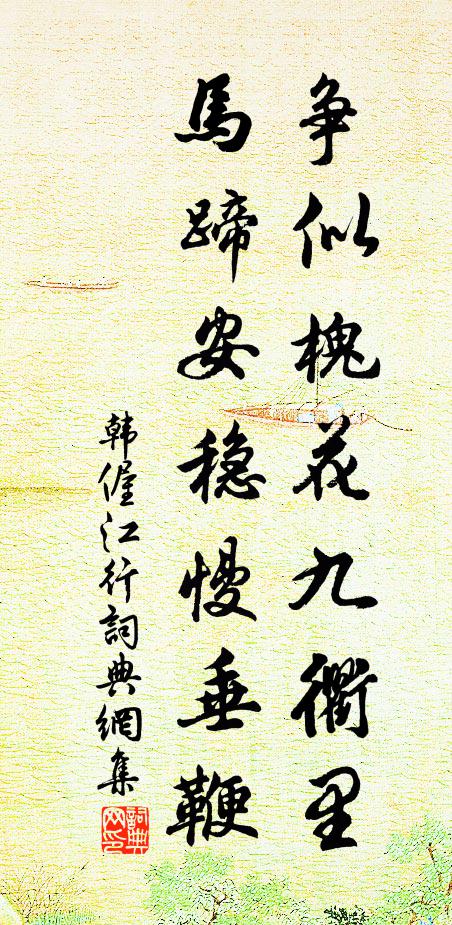 争似槐花九衢里
馬蹄安稳慢垂鞭
韩偓江行詞典網集
詞典网印